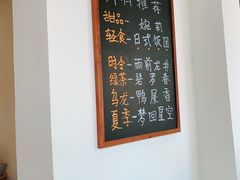 推荐
甜品—婉莉
轻食—日式饭团
时令—雨前龙井
绿茶—碧罗春
乌龙—鸭屎香
夏季—梦回星空